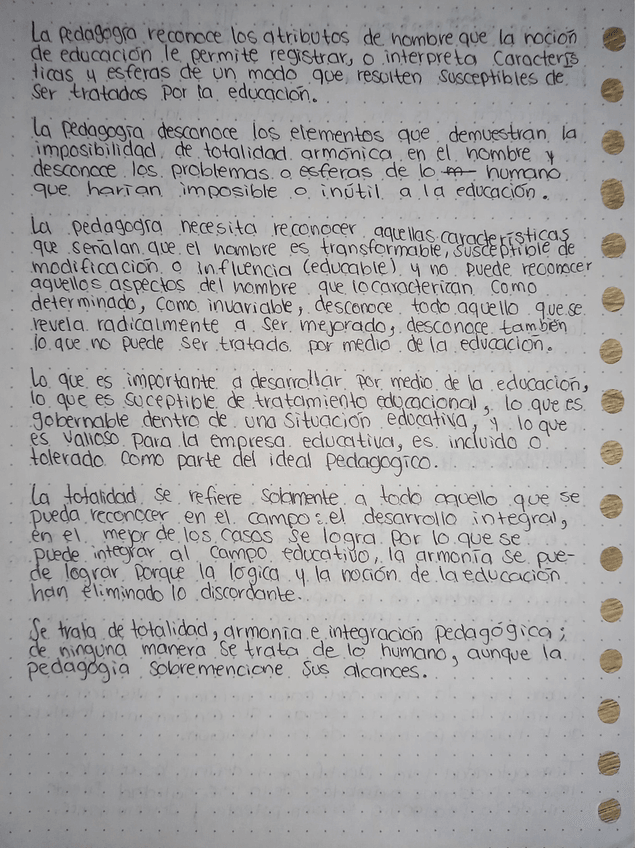 La pedagogía reconoce los atributos de hombre que la noción
de educación le permite registrar, o interpreta caracterís
ticas y esferas de un modo que resulten susceptibles de
ser tratados por la educación.
La pedagogía desconoce los elementos que demuestran la
imposibilidad de totalidad armónica en el hombre y
desconoce los problemas o esferas de lo humano
que harían imposible o inútil a la educación.
La pedagogía necesita reconocer aquellas características
que señalan que el hombre es transformable, susceptible de
modificación o influencia (educable) y no puede reconocer
aquellos aspectos del hombre que lo caracterizan como
determinado, como invariable, desconoce todo aquello que se
revela radicalmente a ser mejorado, desconoce también
lo que no puede ser tratado por medio de la educación.
Lo que es importante a desarrollar por medio de la educación,
lo que es suceptible de tratamiento educacional, lo que es
gobernable dentro de una situación educativa, y lo que
es valioso para la empresa educativa, es incluido o
tolerado como parte del ideal pedagogico.
La totalidad se refiere solamente a todo aquello que se
pueda reconocer en el campo: el desarrollo integral,
en el mejor de los casos se logra por lo que se
puede integrar al campo educativo, la armonía se pue-
de lograr porque la lógica y la noción de la educación
han eliminado lo discordante.
Se trata de totalidad, armonía e integración pedagógica;
de ninguna manera se trata de lo humano, aunque la
pedagogía sobremencione sus alcances.